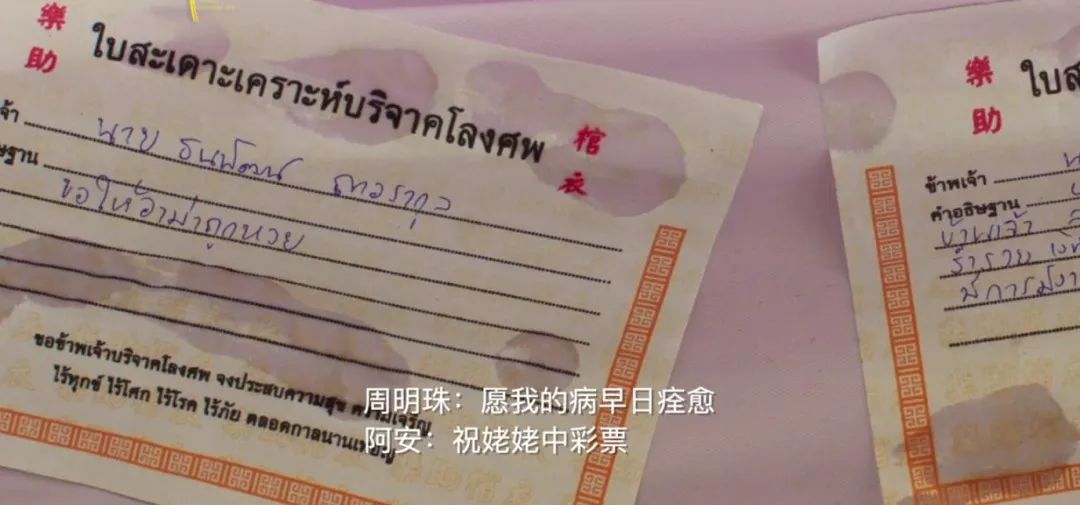 樂助
ใบสะเดาะเคราะห์บริจาคโลงศพ
棺衣
นาย ธนพัฒน์
ขอให้อาม่าถูกหวย
ขอข้าพเจ้าบริจาคโลงศพ จงประสบความสุข ความเจริญ
ไร้ทุกข์ ไร้โศก ไร้โรค ไร้ภัย ตลอดกาลนานเทอญ
樂助
ข้าพเจ้า
คำอธิษฐาน
周明珠：愿我的病早日痊愈
阿安：祝姥姥中彩票